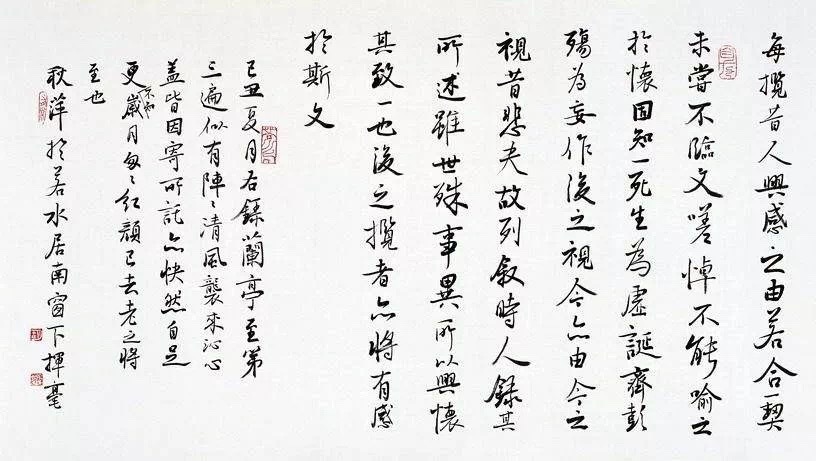 每攬昔人興感之由若合一契
未嘗不臨文嗟悼不能喻之
於懷固知一死生為虛誕齊彭
殤為妄作後之視今亦由今之
視昔悲夫故列敘時人錄其
所述雖世殊事異所以興懷
其致一也後之攬者亦將有感
於斯文
己丑夏月右錄蘭亭至第
三遍似有陣〻清風襲來沁心
蓋皆因寄所託亦快然自足
更歲月匆〻紅顏已去老之將
至也
耿萍於若水居南窗下揮毫